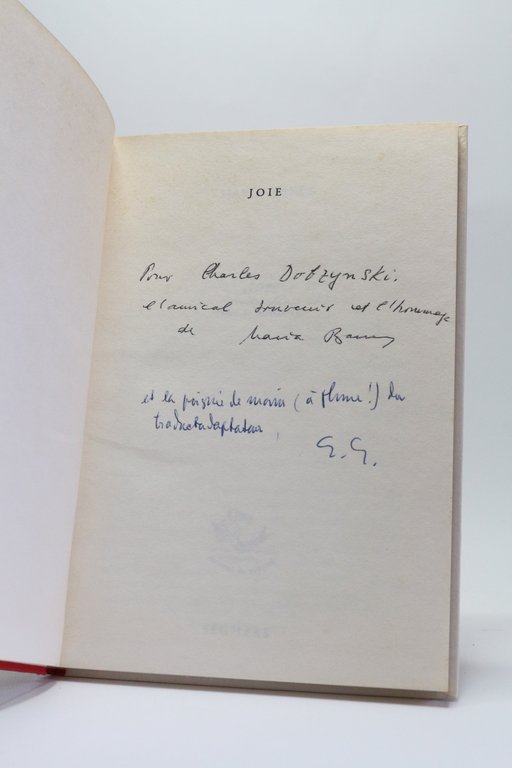 JOIE
Pour Charles Dobzynski.
l'amical souvenir et l'hommage
de Maria
et la poignée de main (à plume!) du
traductadaptateur
G. G.
SEGHERS